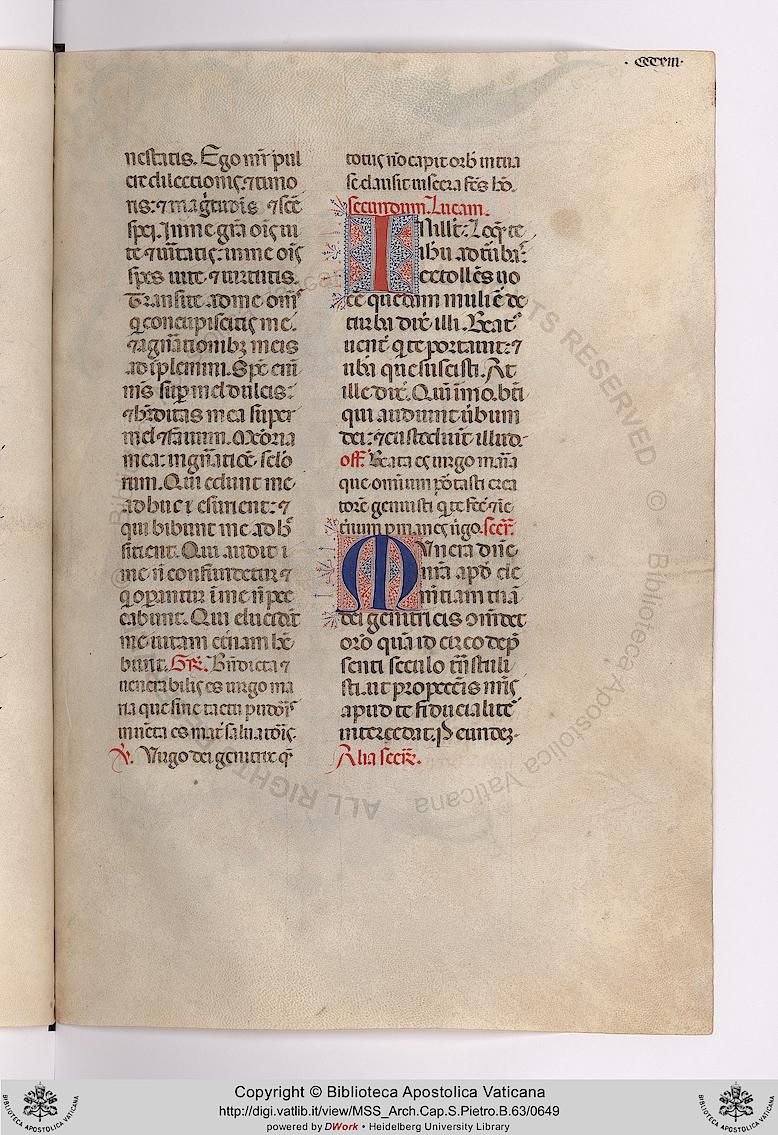 · CCCXIII ·
nestatis. Ego mr̄ pul
cre dilectiōis, ⁊ timo
ris: ⁊ magnitudīs ⁊ scē
spei. In me gr̄a oīs ui
te ⁊ ūitatis: in me oīs
spes uite ⁊ uirtutis.
Transite ad me om̄s
q̄ concupiscitis me.
⁊ a gn̄ationibȝ meis
adīplemini. Sp̄c eni
m̄s sup̄ mel dulcis:
⁊ h̄editas mea super
mel ⁊ fauum. Memoria
mea: in gn̄atiōe sc̄lo
rum. Qui edunt me
adhuc esurient: ⁊
qui bibunt me adh̄
sitient. Qui audit
me n̄ confundetur ⁊
q̄ opantur ī me n̄ pec
cabunt. Qui elucidāt
me uitam et̄nam h̄e
bunt. Gr̄. Bn̄dicta ⁊
uenerabilis es uirgo ma
ria que sine tactu pudoris
inuenta es mat̄ saluatoris.
V. Virgo dei genitrix q̄
totus n̄o capit orb̄ in tua
se clausit uiscera fc̄s hō.
secundum Lucam.
In illīt: Loq̄nte
ihu ad turbas:
extollēs uo
cē quedam muliē de
turba dix̄ illi. Beat̄
uent̄ q̄ te portauit: ⁊
ub̄a que suxisti. At
ille dix̄. Quīimo bt̄i
qui audiunt ūbum
dei: ⁊ custodiūt illud.
off. Beata es uirgo maria
que omnium portasti crea
torē genuisti q̄ te fecit ⁊ in et̄
num pmanes ūgo. secr̄.
Munera dn̄e
nr̄a apd̄ cle
mētiam tuā
dei genitricis om̄det
or̄o quā idcirco de p̄
senti seculo trāstuli
sti. ut pro peccātis nr̄is
apud te fiducialit̄
intercedat. p̄ eundeȝ.
Alia secr̄.
BIBLIOTECA APOSTOLICA VATICANA
Copyright © Biblioteca Apostolica Vaticana
http://digi.vatlib.it/view/MSS_Arch.Cap.S.Pietro.B.63/0649
powered by DWork • Heidelberg University Library
BIBLIOTECA APOSTOLICA VATICANA